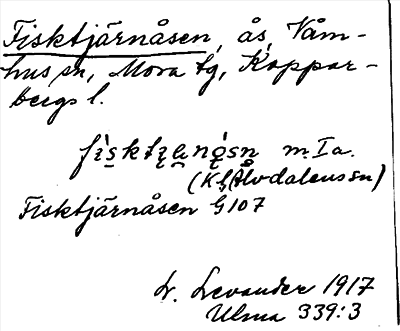 Fisktjärnåsen, ås, Våm-
hus sn, Mora tg, Koppar-
bergs l.
m. Ia.
(Älvdalens sn)
Fisktjärnåsen G 107
L. Levander 1917
Ulma 339:3